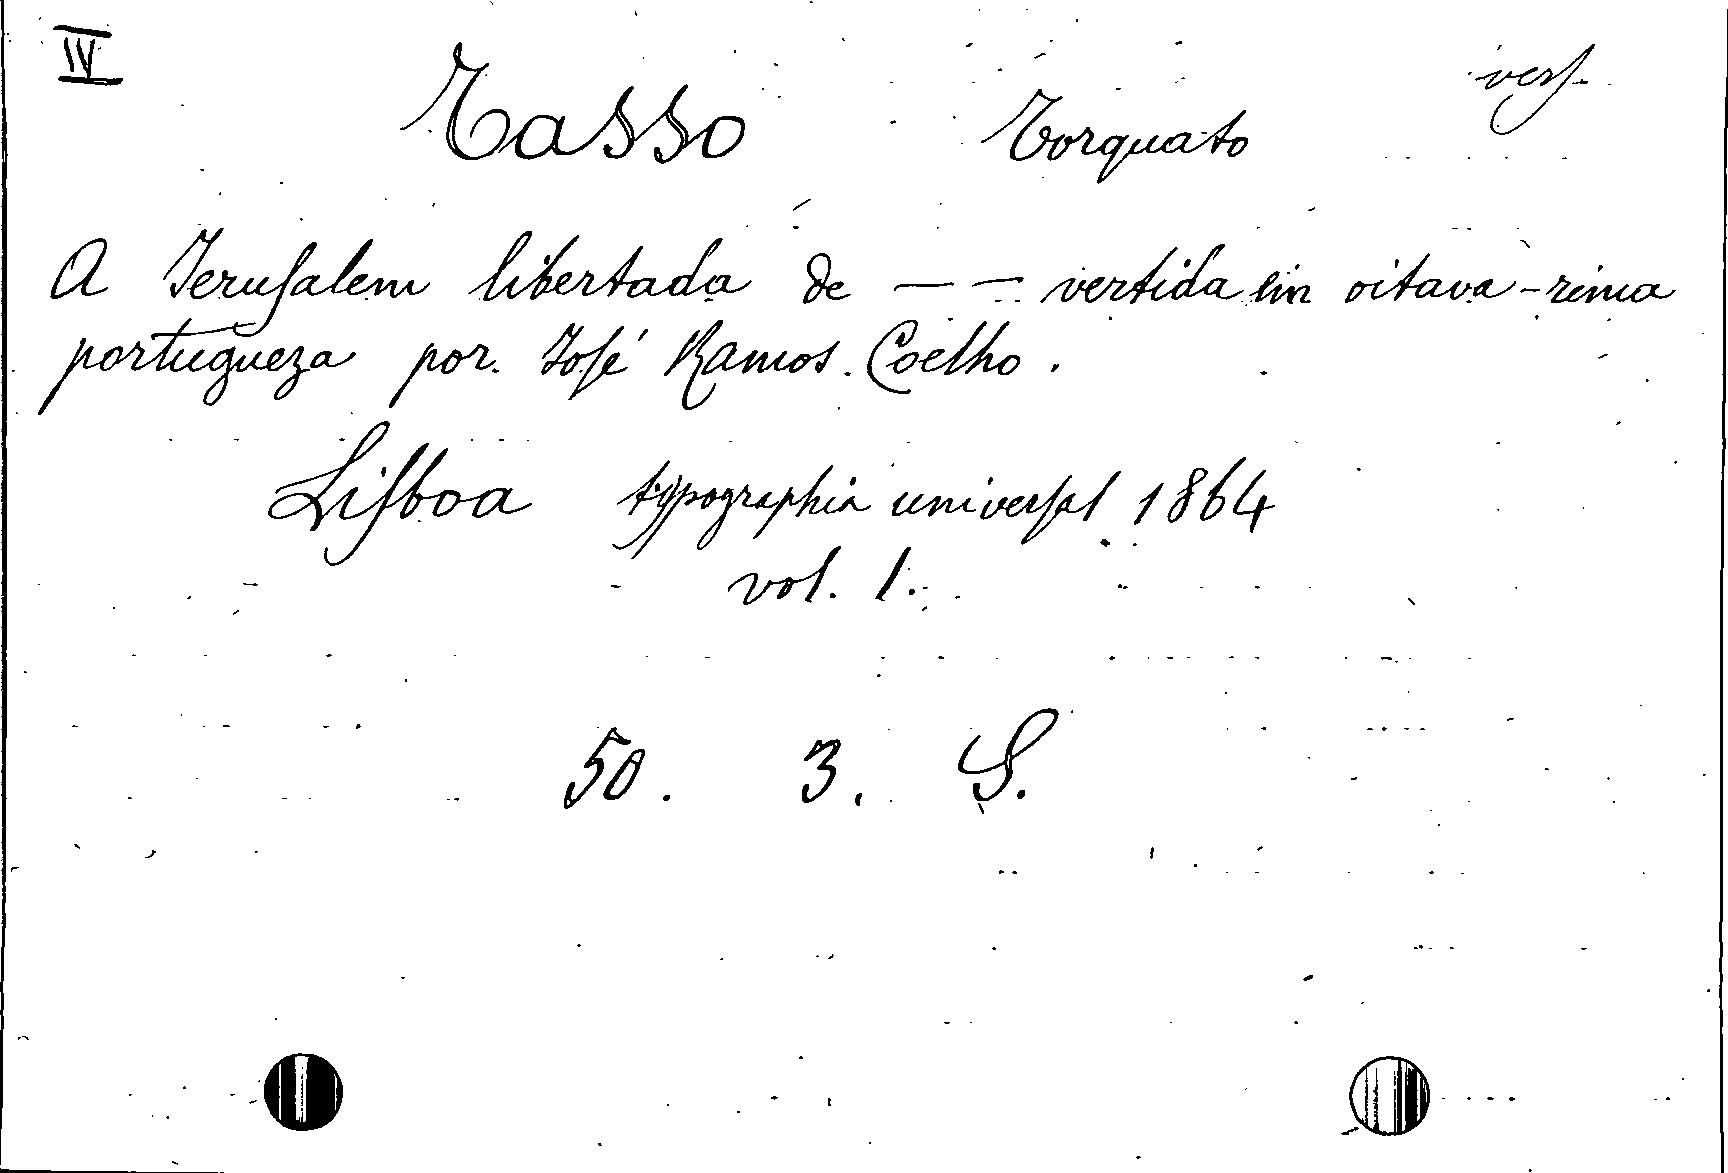 IV
vers.
Tasso Torquato
A Jerusalem libertada de — — vertida em oitava-rima
portugueza por José Ramos Coelho.
Lisboa typographia universal 1864
vol. 1.
50. 3. S.